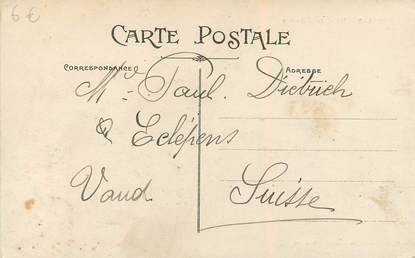 6€
CARTE POSTALE
CORRESPONDANCE
ADRESSE
Mr Paul. Diétrich
Eclépens
Vaud. Suisse